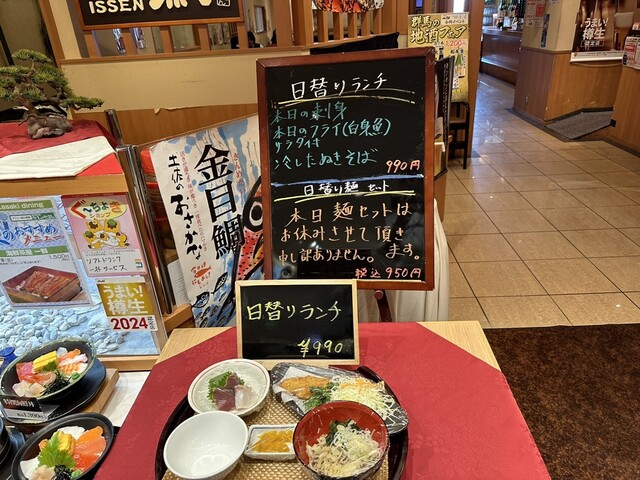 ISSEN
日替りランチ
本日の刺身
本日のフライ(白身魚)
サラダ付き
冷したぬきそば
990円
日替り麺セット
本日麺セットは
お休みさせて頂き
ます。
申し訳ありません。
税込950円
日替りランチ
¥990
金目鯛
土佐のおさかな
群馬の
地酒フェア
1,200円
うまい!
樽生
dining
のおすすめ
1,500円
ぐーちょき
ソフトドリンク
一杯サービス
うまい!
樽生
2024